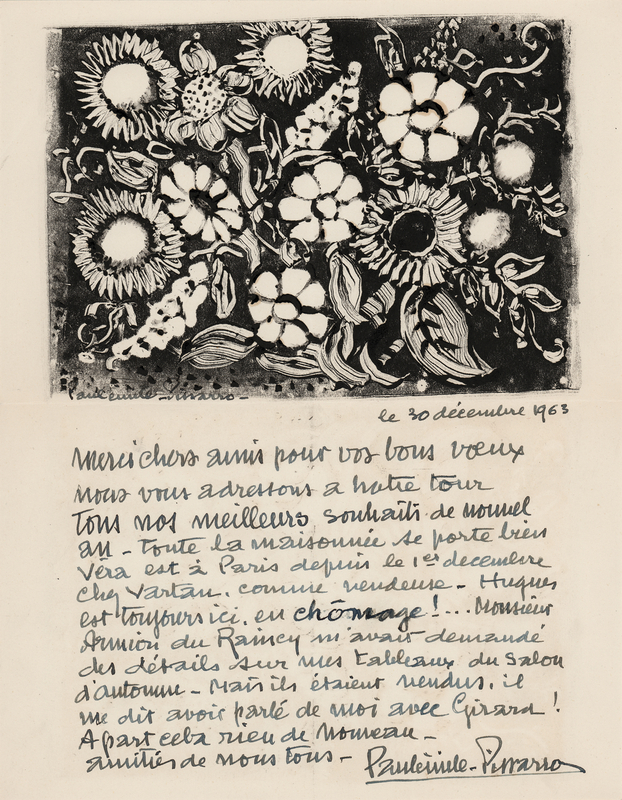 Paulémile-Pissarro-
le 30 décembre 1963
merci chers amis pour vos bons vœux
nous vous adressons a notre tour
tous nos meilleurs souhaits de nouvel
an - toute la maisonnée se porte bien
Véra est à Paris depuis le 1er decembre
chez Vartan. comme vendeuse - Hugues
est toujours ici, en chômage!... Monsieur
du Raincy m'avait demandé
des détails sur mes tableaux du Salon
d'automne - Mais ils étaient vendus. il
me dit avoir parlé de moi avec Girard!
A part cela rien de nouveau -
amitiés de nous tous - Paulémile-Pissarro